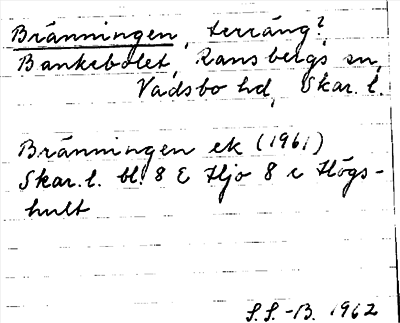 Bränningen, terräng?
Bankebolet, Ransbergs sn,
Vadsbo hd, Skar. l.
Bränningen ek (1961)
Skar. l. bl. 8 E Hjo 8 c Högs-
hult
S.S.-B. 1962